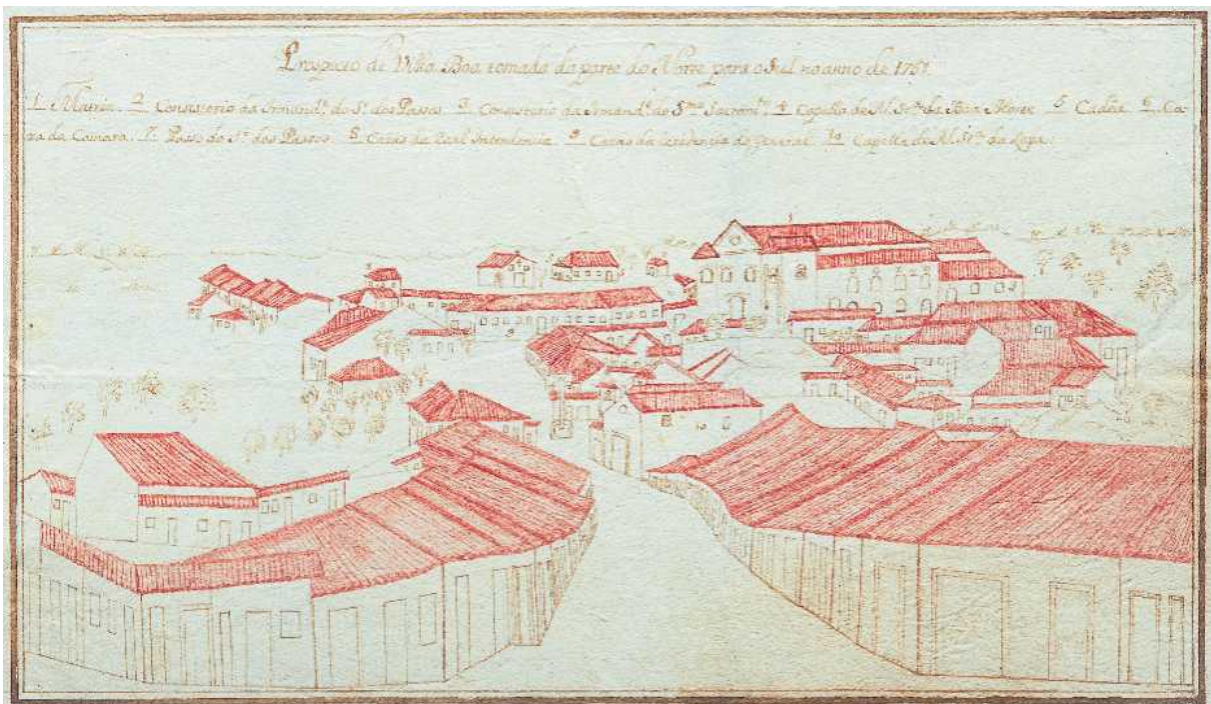 Prospecto de Villa Boa tomada da parte do Norte para o Sul no anno de 1751.
1 Matriz. 2 Consistorio da Irmand.e do S.r dos Passos 3 Consistorio da Irmand.e do S.mo Sacram.to 4 Capella de N. Snr.a da Boa Morte 5 Cadêa 6 Ca-
za da Camara. 7 Passo do S.r dos Passos. 8 Cazas da Real Intendencia 9 Cazas da rezidencia do General 10 Capella de N. Snr.a da Lapa.